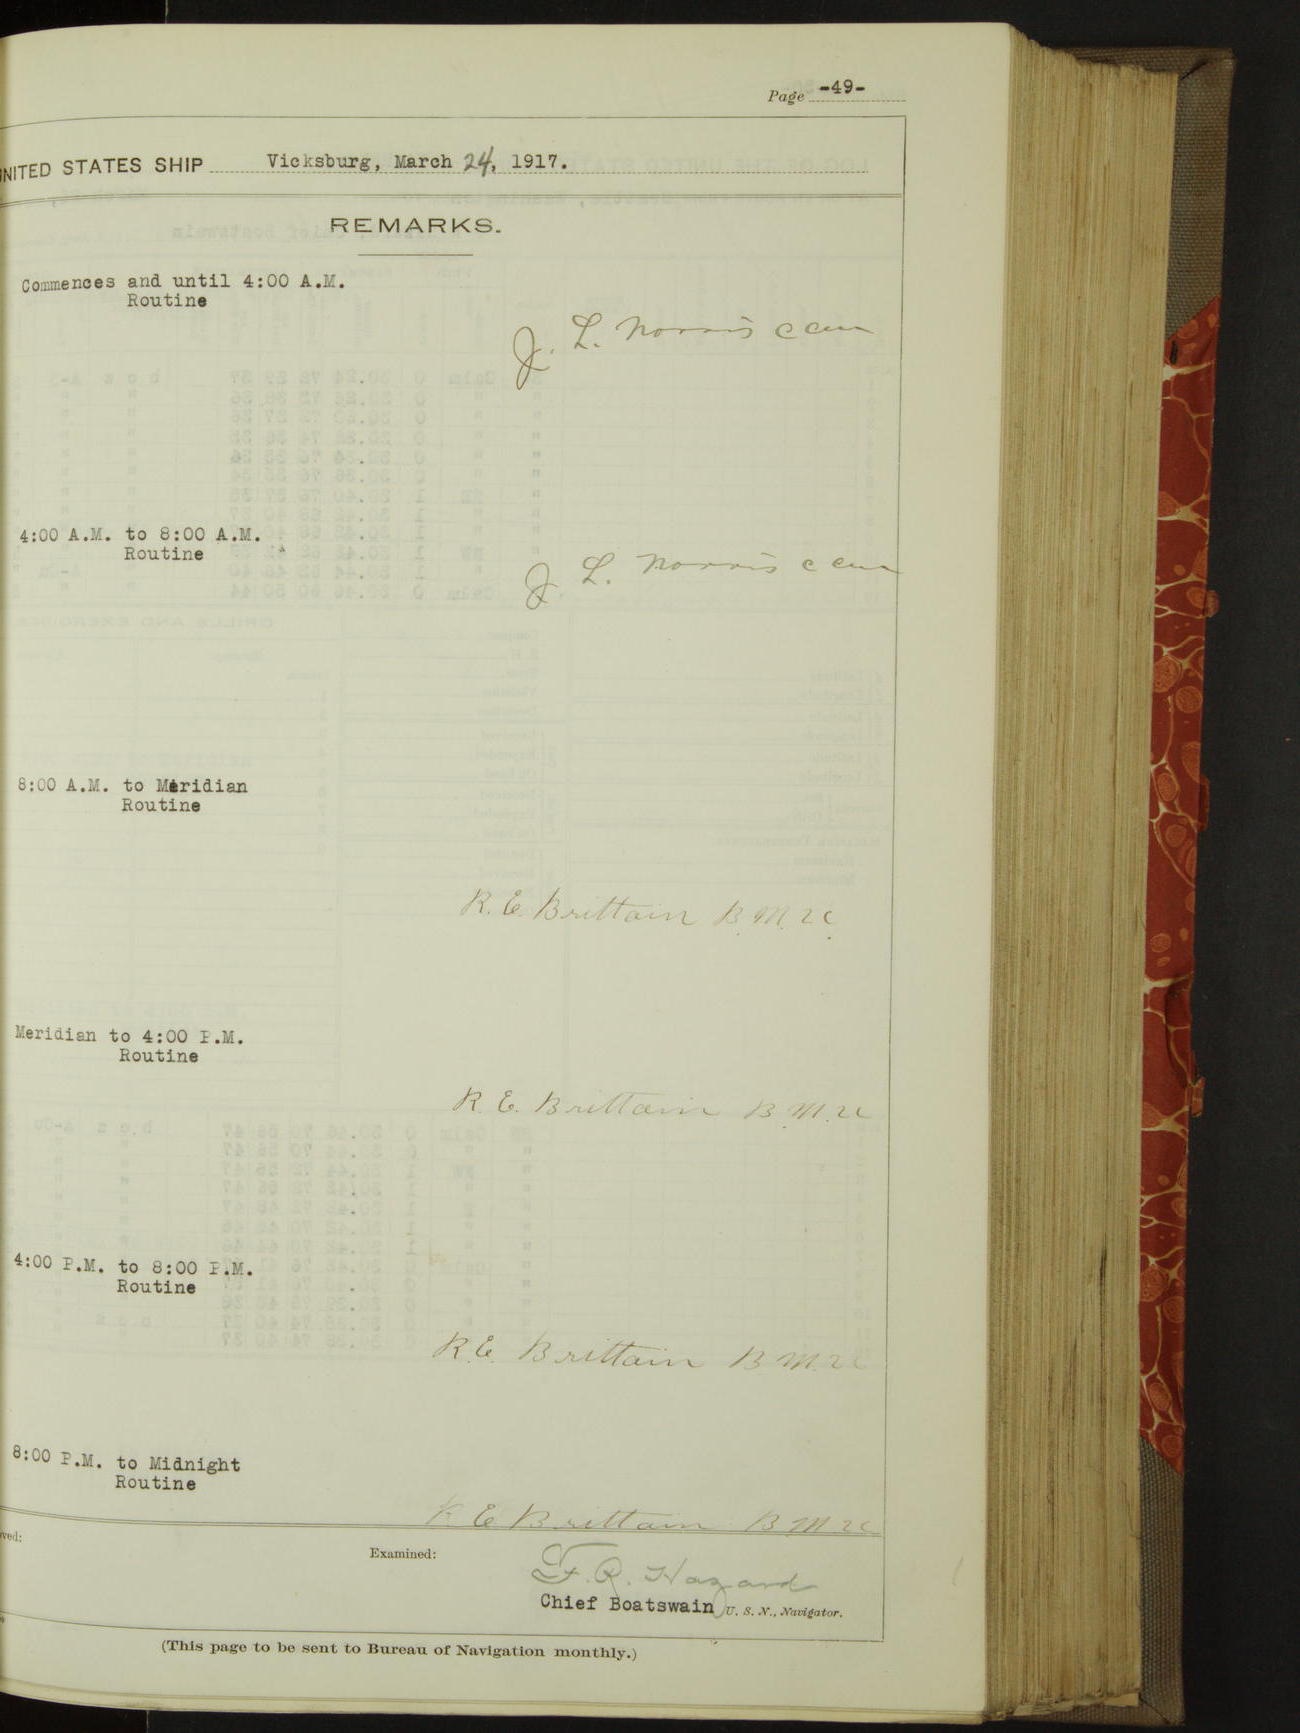 Page -49-
UNITED STATES SHIP Vicksburg, March 24, 1917.
REMARKS.
Commences and until 4:00 A.M.
Routine
J. L. Norris CCM
4:00 A.M. to 8:00 A.M.
Routine
J L. Norris CCM
8:00 A.M. to Meridian
Routine
R. E. Brittain B.M. 2c
Meridian to 4:00 P.M.
Routine
R. E. Brittain B.M. 2c
4:00 P.M. to 8:00 P.M.
Routine
R. E. Brittain B M. 2c
8:00 P.M. to Midnight
Routine
R E Brittain B M 2c
Examined:
F. R. Hazard
Chief Boatswain U. S. N., Navigator.
(This page to be sent to Bureau of Navigation monthly.)